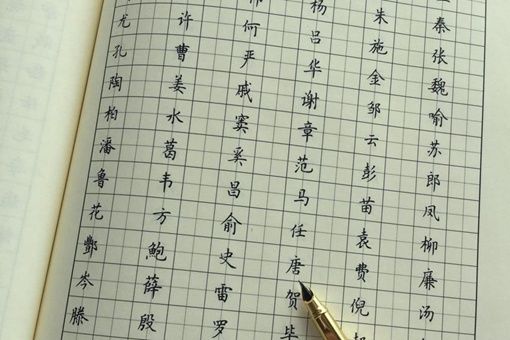 杨朱秦
尤许何吕施张
孔曹严华金魏
陶姜戚谢邹喻
柏水窦章云苏
潘葛奚范彭郎
鲁韦昌马苗凤
花方俞任袁柳
酆鲍史唐费廉
岑薛雷贺倪汤
滕殷罗毕